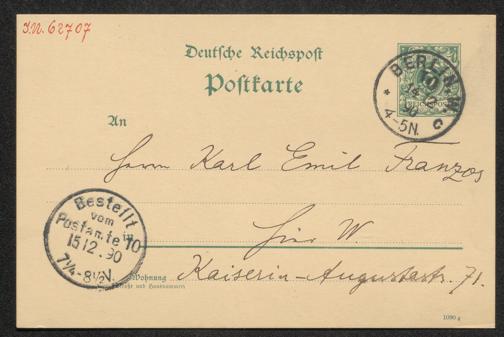 I.N. 62707
Deutsche Reichspost
Postkarte
BERLIN, W.
14 12
90
4-5N.
* c
An
Herrn Karl Emil Franzos
Hier W.
Kaiserin-Augustastr. 71.
Wohnung
(Straße und Hausnummer)
Bestellt
vom
Postamte 10
15 12. 90
7¼-8½N.
1090 g